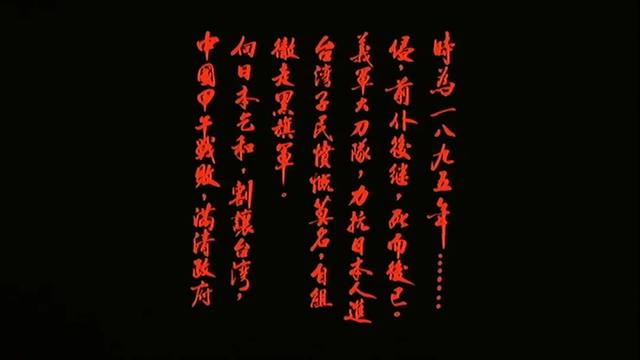 中國甲午戰敗，滿清政府
向日本乞和，割讓台湾，
撤走黑旗軍。
台湾子民憤慨莫名，自組
義軍大刀隊，力抗日本人進
侵，前仆後継，死而後已。
時為一八九五年……